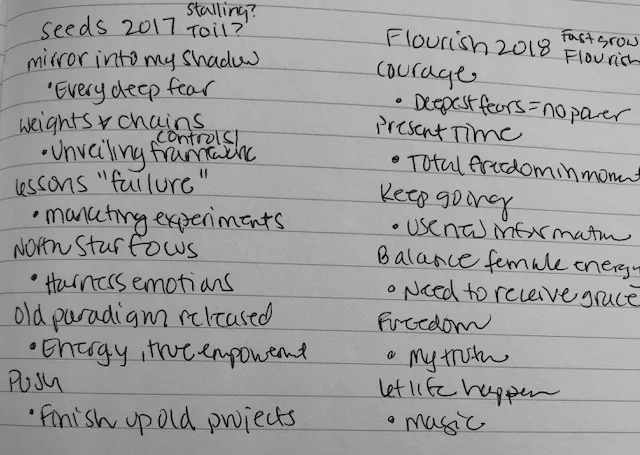 seeds 2017 stalling? Toil?
mirror into my shadow
• Every deep fear
weights & chains
• Unveiling framework control(s)
lessons "failure"
• marketing experiments
North Star focus
• Harness emotions
Old paradigm released
• Energy, true empowerment
Push
• Finish up old projects
Flourish 2018 Fast grow Flourish
courage
• Deepest fears = no power
Present Time
• Total freedom in moment
Keep going
• Use new information
Balance female energy
• Need to receive grace
Freedom
• My truth
Let life happen
• magic